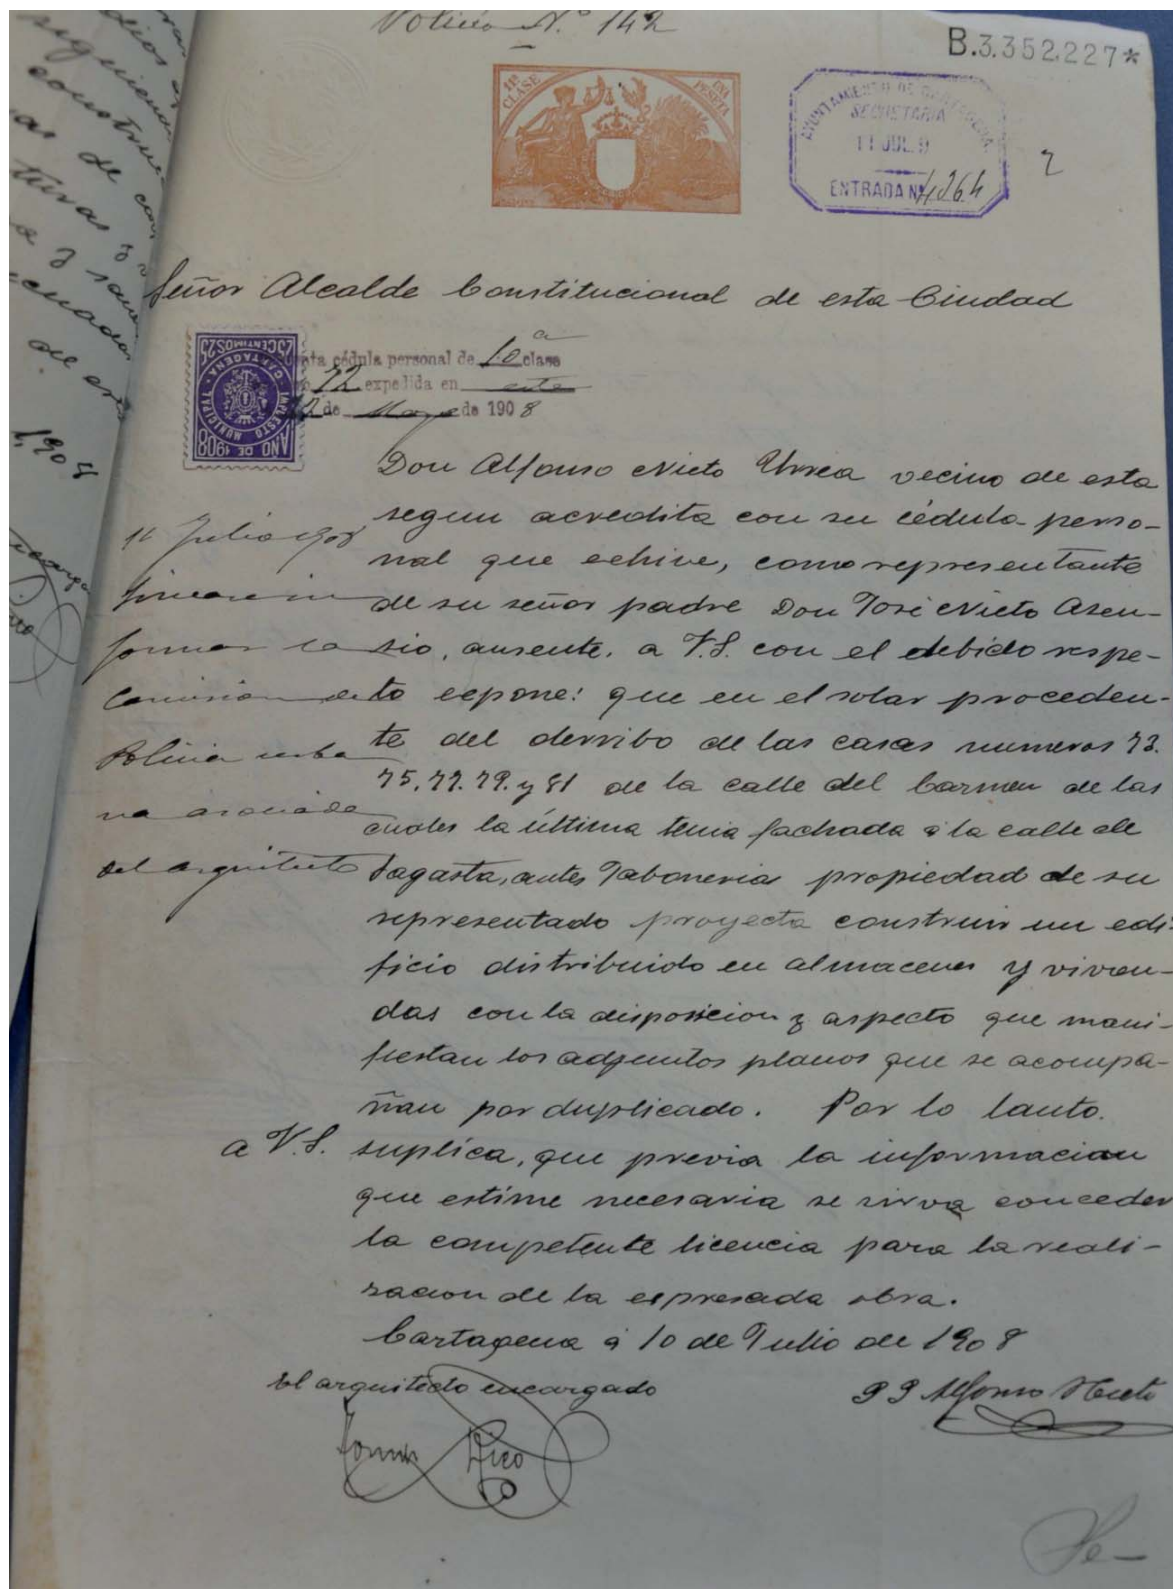 Nº 142
B.3.352.227*
11ª CLASE
UNA PESETA
AYUNTAMIENTO DE CARTAGENA
SECRETARÍA
11 JUL 9
ENTRADA Nº 4264
2
Señor Alcalde Constitucional de esta Ciudad
cédula personal de 10ª clase
72 expedida en esta
de Mayo de 1908
AÑO DE 1908
IMPUESTO MUNICIPAL
CARTAGENA
25 CENTIMOS 25
Don Alfonso Nieto Urrea vecino de esta
segun acredita con su cédula perso-
nal que echive, como representante
de su señor padre Don José Nieto Asen-
sio, ausente, a V.S. con el debido respe-
to expone: que en el solar proceden-
te del derribo de las casas numeros 73.
75. 77. 79. y 81 de la calle del Carmen de las
cuales la última tenia fachada á la calle de
Sagasta, antes Jaboneria propiedad de su
representado proyecta construir un edi-
ficio distribuido en almacenes y vivien-
das con la disposicion y aspecto que mani-
fiestan los adjuntos planos que se acompa-
ñan por duplicado. Por lo tanto.
a V.S. suplica, que previa la informacion
que estime necesaria se sirva conceder
la competente licencia para la reali-
zacion de la espresada obra.
Cartagena á 10 de Julio de 1908
El arquitecto encargado
PP Alfonso Nieto
Tomás Rico
11 Julio 908
formar la
Comision de
Policia urba
na asociada
del arquitecto
1908